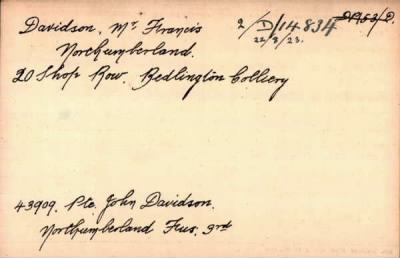 Davidson, Mr Francis
2/D/14834
22/3/23.
Northumberland.
20 Shop Row. Bedlington Colliery
43909. Pte. John Davidson.
Northumberland Fus. 3rd